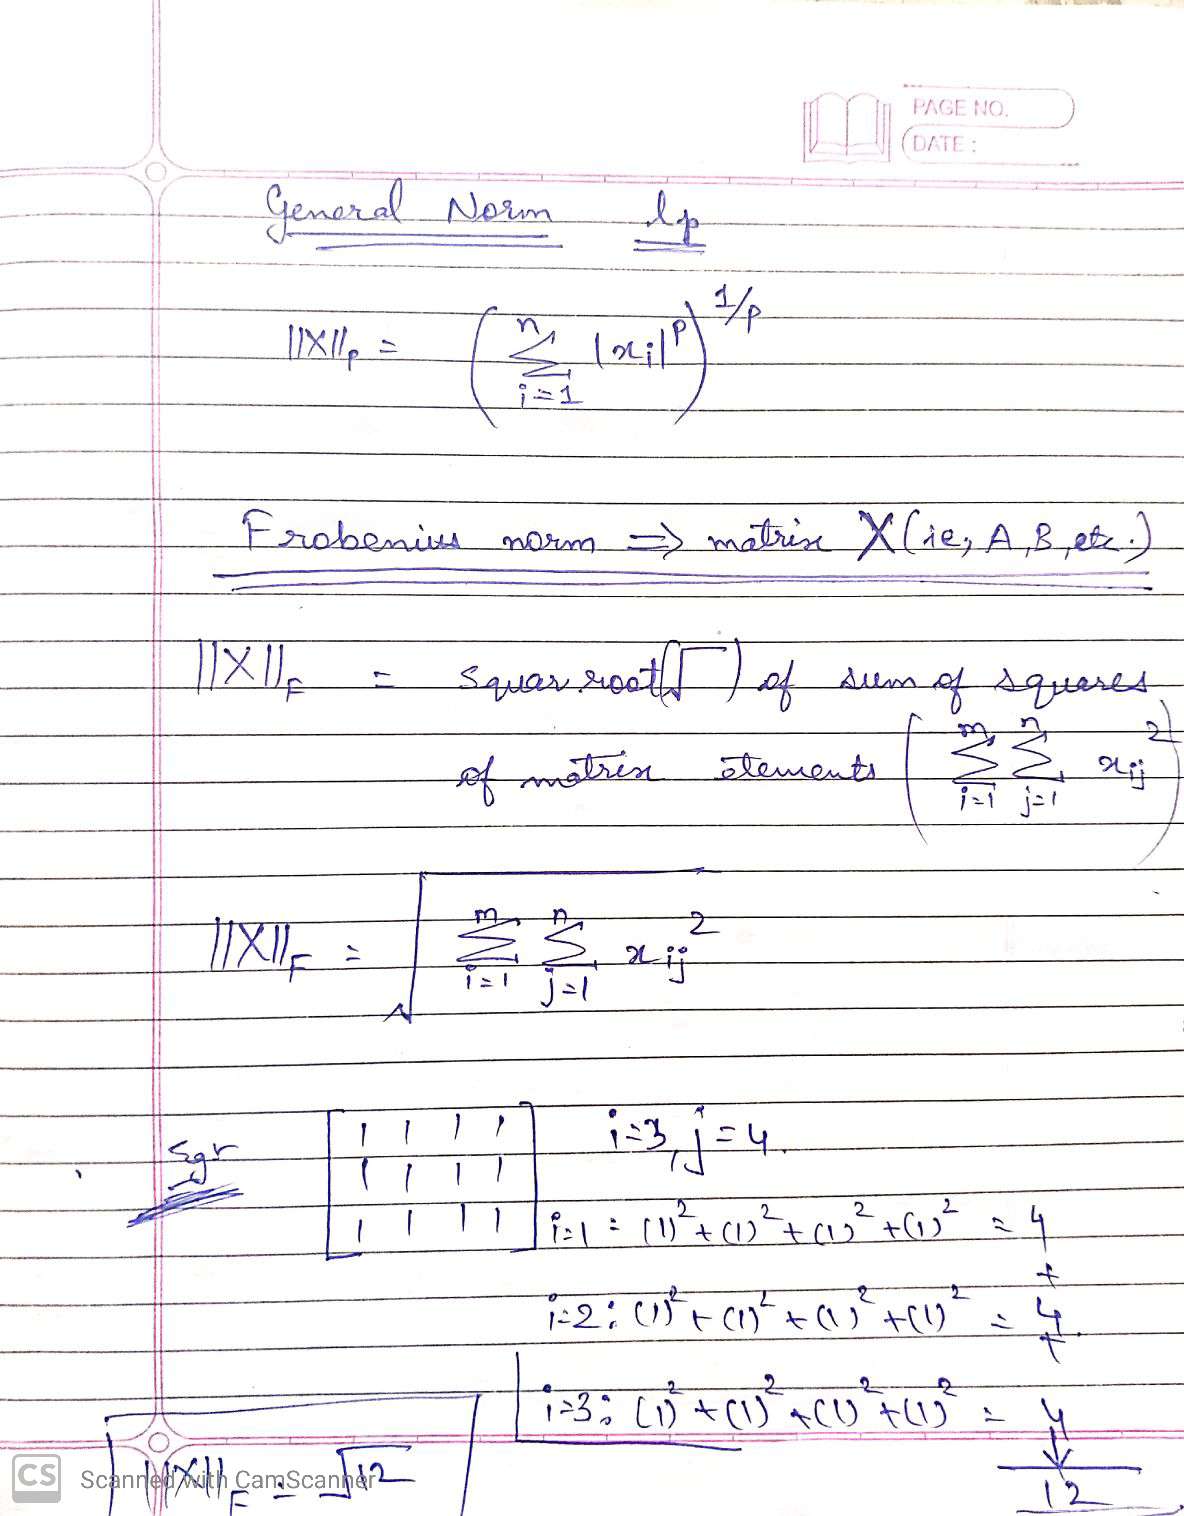 PAGE NO.
DATE :
General Norm lp
||X||p = ( n Σ i=1 |xi|^p )^1/p
Frobenius norm => matrix X (ie, A, B, etc.)
||X||F = squar root(√ ) of sum of squares
of matrix elements ( m Σ i=1 n Σ j=1 xij^2 )
||X||F = √ m Σ i=1 n Σ j=1 xij^2
1 1 1 1 i=3, j=4.
1 1 1 1
1 1 1 1 i=1 : (1)^2 + (1)^2 + (1)^2 + (1)^2 = 4
+
i=2 : (1)^2 + (1)^2 + (1)^2 + (1)^2 = 4
+
i=3 : (1)^2 + (1)^2 + (1)^2 + (1)^2 = 4
||X||F = √12
12
CS Scanned with CamScanner